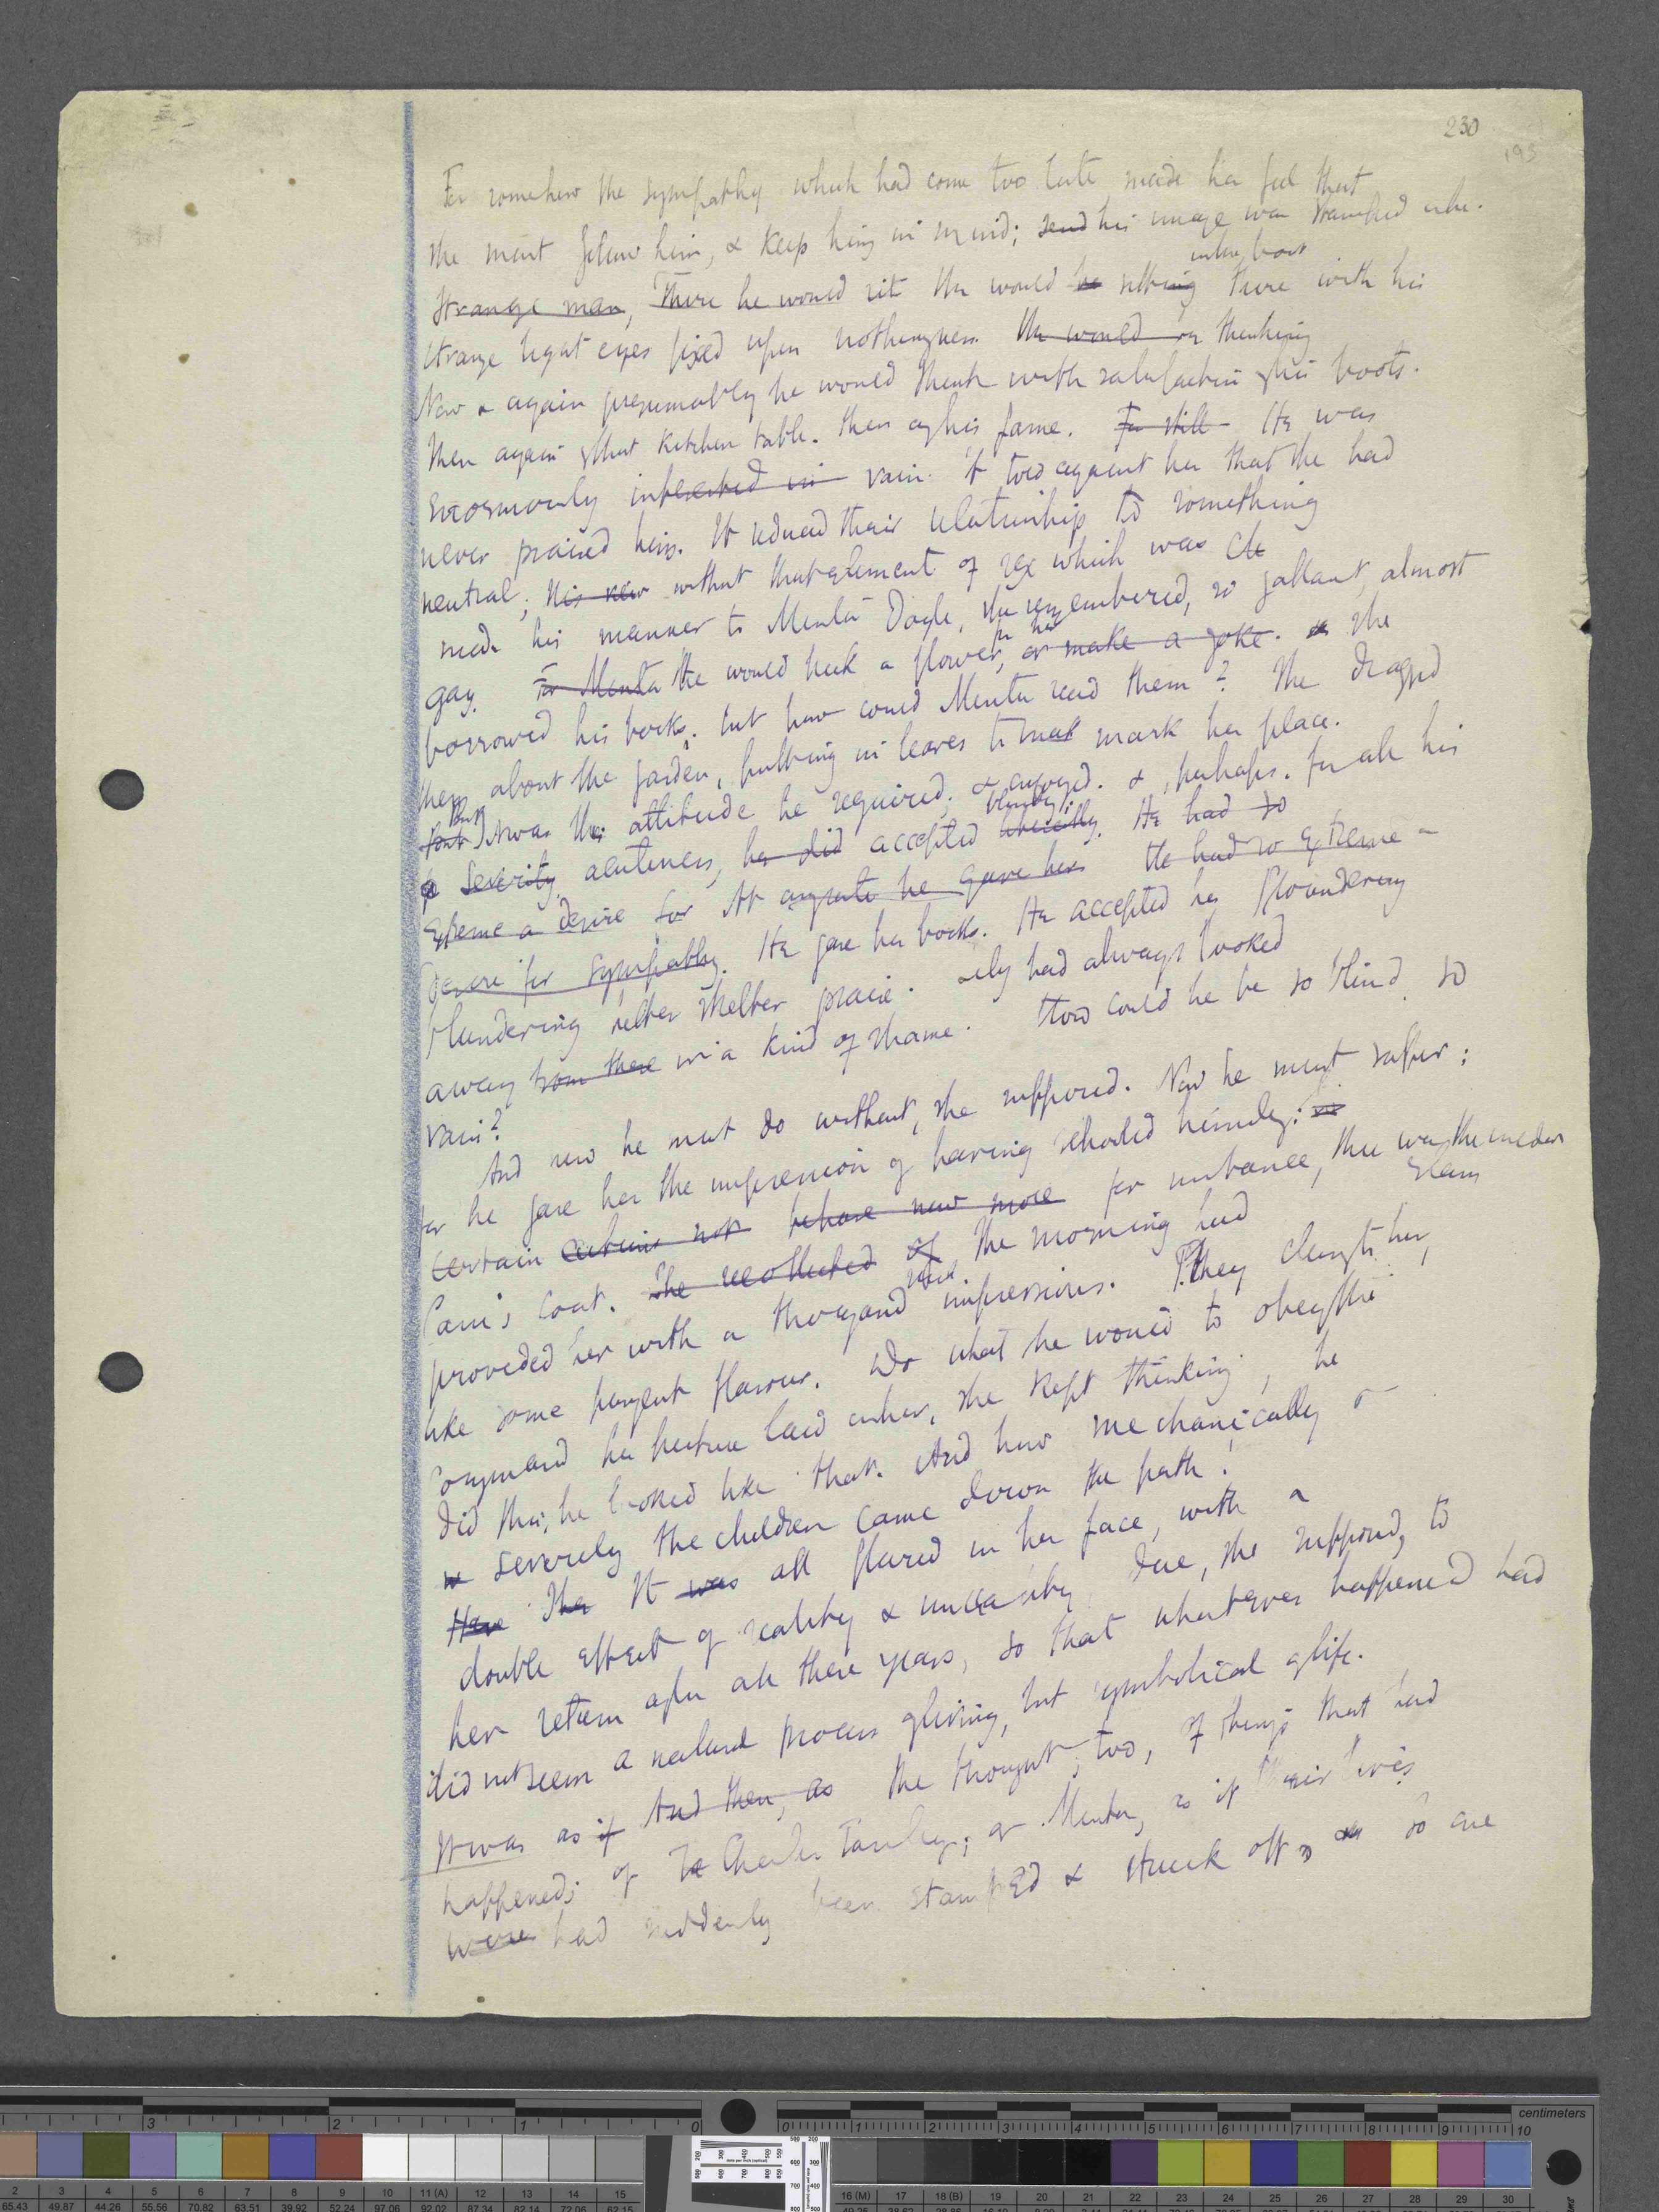 230
193
For somehow the sympathy which had come too late made her feel that
she must follow him, & keep him in mind; send his image was stamped
in the boat
strange man, There he would sit He would be sitting there with his
strange light eyes fixed upon nothingness. He would on thinking
Now & again presumably he would think with satisfaction of his boots.
Then again of that kitchen table. Then of his fame. For still He was
enormously interested in vain. It told against her that she had
never praised him. It reduced their relationship to something
neutral; without that element of sex which was
made his manner to Minta Doyle, she remembered, so gallant, almost
for her
gay. For Minta He would pick a flower, or make a joke. She
borrowed his books; but how could Minta read them? She dragged
them about the garden, putting in leaves to mark her place.
But
But It was the attitude he required, & enjoyed. & perhaps. for all his
blindly
severity acuteness, he did accepted He had so
extreme a desire for it he gave her He had so extreme a
desire for sympathy. He gave her books. He accepted her floundering
blundering helter skelter praise. Lily had always looked
away from there in a kind of shame. How could he be so blind, so
vain?
And now he must do without, she supposed. Now he must suffer;
for he gave her the impression of having himself:
certain not before now more for instance, there was the
Cam's coat. She recollected of The morning had
provided her with a thousand impressions. They clung to her,
like some pungent flavour. Do what she would to obey the
command her picture laid on her, she kept thinking, he
did this, he looked like that. And how mechanically &
severely the children came down the path!
Here She It was all flared in her face, with a
double effect of reality & due, she supposed, to
her return after all these years, so that whatever happened had
did not seem a natural process of living, but symbolical of life.
It was as if And then, as She thought, too, of things that had
happened; of Charles Tansley; or Minta, as if their lives
were had suddenly been stamped & struck off, so one
centimeters